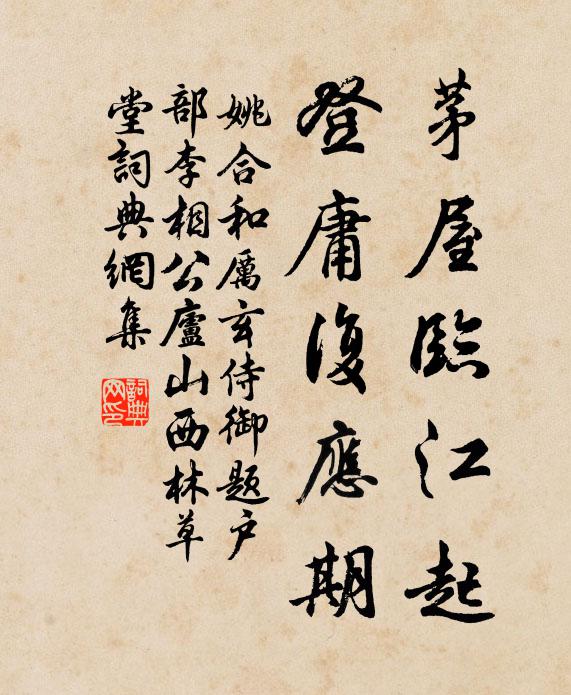 茅屋臨江起
登庸復應期
姚合和厲玄侍御题户
部李相公廬山西林草
堂詞典網集
詞典网印